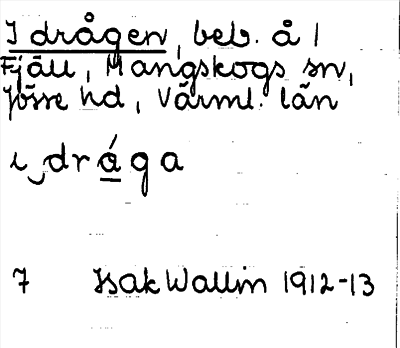 I drågen, beb. å /
Fjäll, Mangskogs sn,
Jösse hd, Värml. län
i‿drága
7 Isak Wallin 1912-13